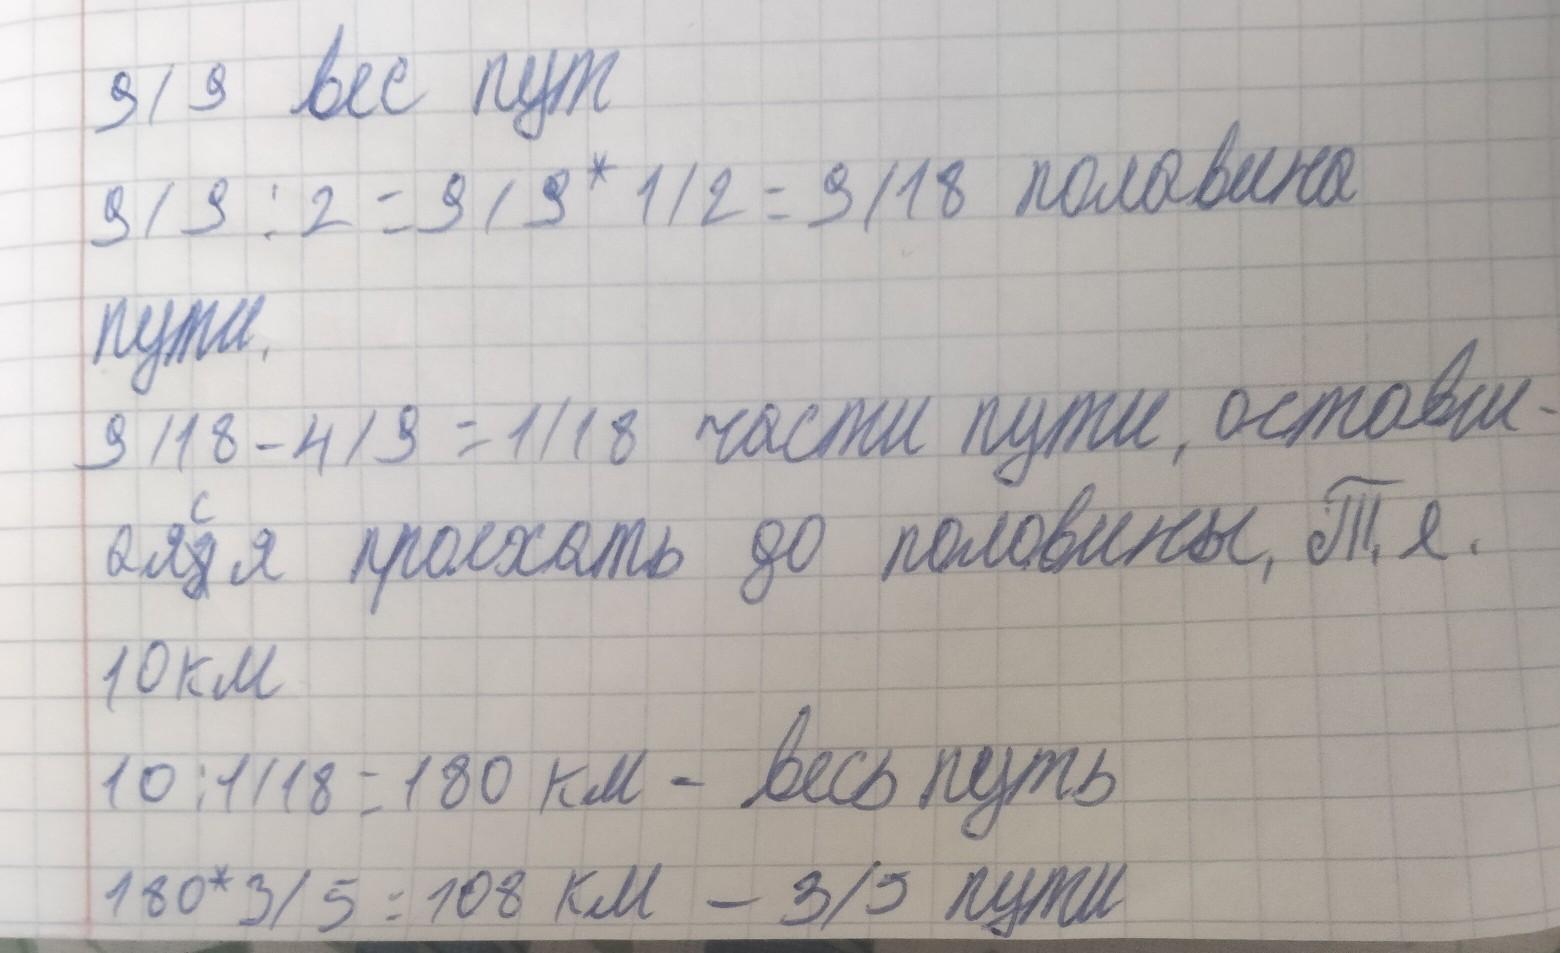 9/9 вес пут
9/9 : 2 = 9/9 * 1/2 = 9/18 половина
пути.
9/18 - 4/9 = 1/18 части пути, оставш-
аяся проехать до половины, т.е.
10 км
10 : 1/18 = 180 км - весь путь
180 * 3/5 = 108 км - 3/5 пути